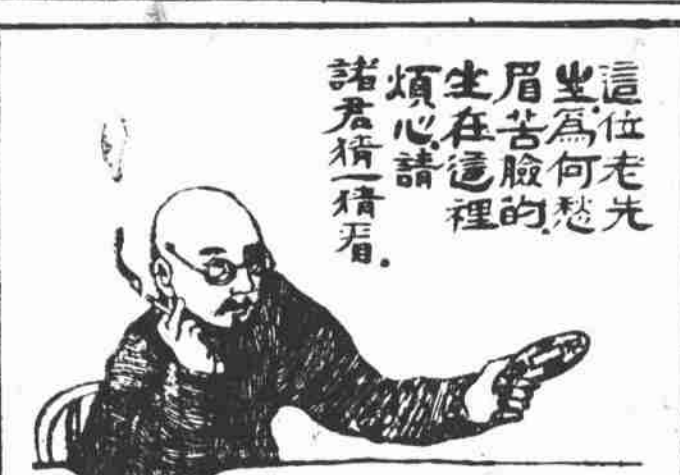 這位老先
生.爲何愁
眉苦臉的.
坐在這裡
煩心.請
諸君猜一猜看.